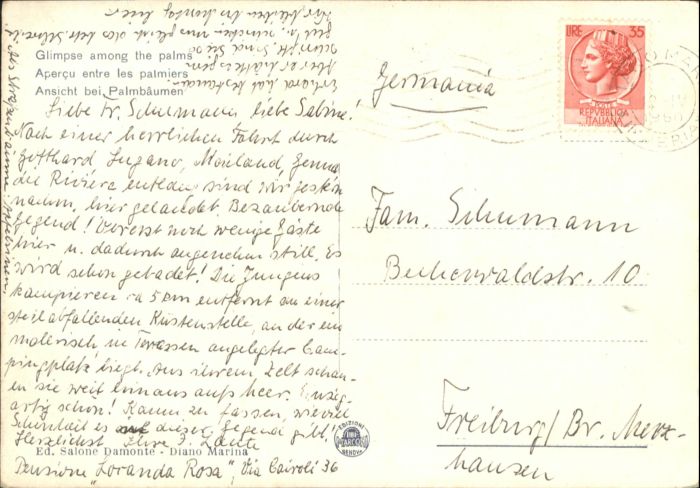 Glimpse among the palms
Aperçu entre les palmiers
Ansicht bei Palmbäumen
Liebe Fr. Schumann, liebe Sabine!
Nach einer herrlichen Fahrt durch
Gotthard Lugano, Mailand Genua
die Riviera entlang sind wir gestern
hier gelandet. Bezaubernde
Gegend! Vorerst noch wenige Gäste
hier u. dadurch angenehm still. Es
wird schon gebadet! Die Jungens
kampieren ca 5 km entfernt an einer
steil abfallenden Küstenstelle, an der ein
malerisch in Terassen angelegter Cam-
pingplatz liegt. Aus ihrem Zelt schau-
en sie weit hinaus aufs Meer. Einzig-
artig schön! Kaum zu fassen, wieviel
Schönheit es auf dieser Gegend gibt!
Herzlichst Ihre
Ed. Salone Damonte - Diano Marina
Pensione „Locanda Rosa", Via Cairoli 36
Als Strassenbäume
Germania
LIRE 35
POSTE
REPVBBLICA
ITALIANA
ROMA
Fam. Schumann
Buchenwaldstr. 10
Freiburg/Br. Merz-
hausen
EDIZIONI
GENOVA